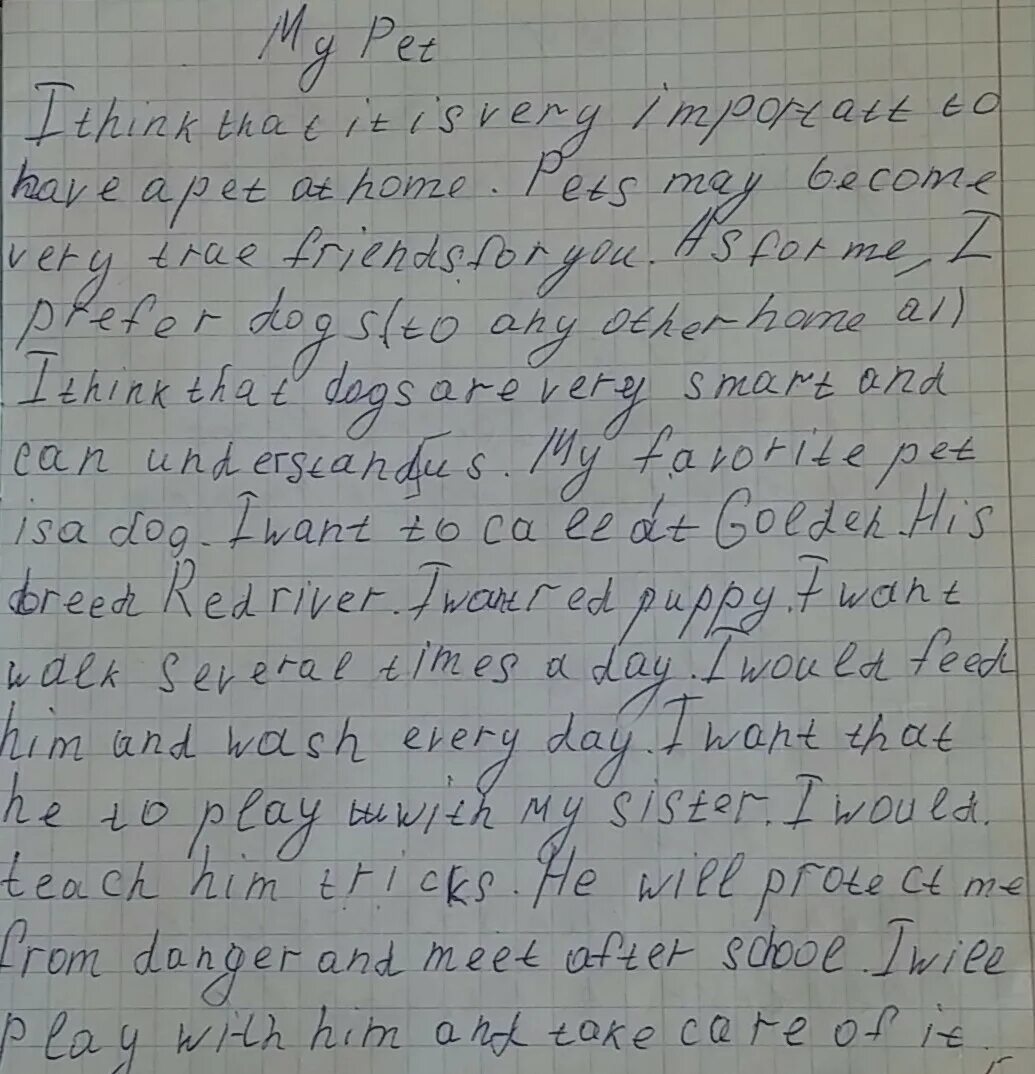 My Pet
I think that it is very importatt to
have a pet at home. Pets may become
very true friends for you. As for me, I
prefer dogs (to any other home all)
I think that dogs are very smart and
can understand us. My favorite pet
is a dog. I want to call it Golden. His
breed Red river. I want red puppy. I want
walk several times a day. I would feed
him and wash every day. I want that
he to play with my sister. I would.
teach him tricks. He will protect me
from danger and meet after school. I will
play with him and take care of it.